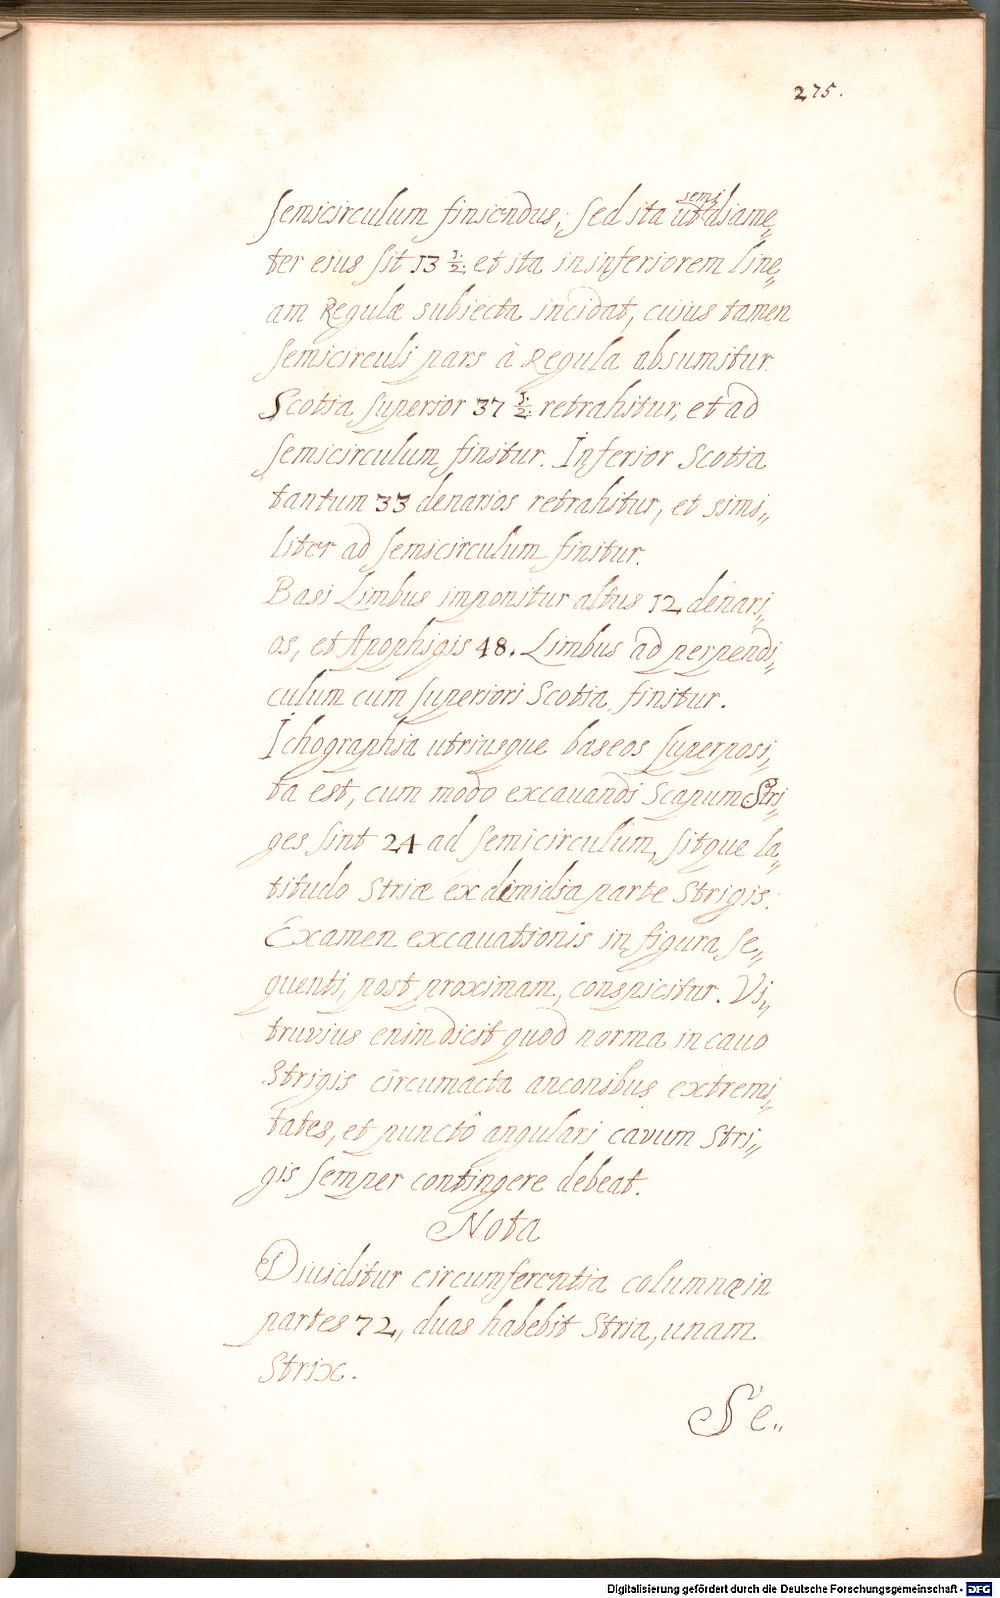 275.
semicirculum finiendus; sed ita ut semi diame„
ter eius sit 13 1/2 et ita in inferiorem line„
am Regulæ subiecta incidat, cuius tamen
semicirculi pars à Regula absumitur.
Scotia superior 37 1/2 retrahitur, et ad
semicirculum finitur. Inferior Scotia
tantum 33 denarios retrahitur, et simi„
liter ad semicirculum finitur.
Basi Limbus imponitur altus 12 denari„
os, et Apophigis 48. Limbus ad perpendi„
culum cum superiori Scotia finitur.
Ichographia utriusque baseos superposi„
ta est, cum modo excauandi Scapum Stri„
ges sint 24 ad semicirculum, sitque la„
titudo striæ ex dimidia parte strigis.
Examen excauationis in figura se„
quenti, post proximam, conspicitur. Vi„
truvius enim dicit quod norma in cauo
strigis circumacta anconibus extremi„
tates, et punctô angulari cavum stri„
gis semper contingere debeat.
Nota
Diuiditur circumferentia columnæ in
partes 72, duas habebit stria, unam
strix.
Se„
Digitalisierung gefördert durch die Deutsche Forschungsgemeinschaft - DFG